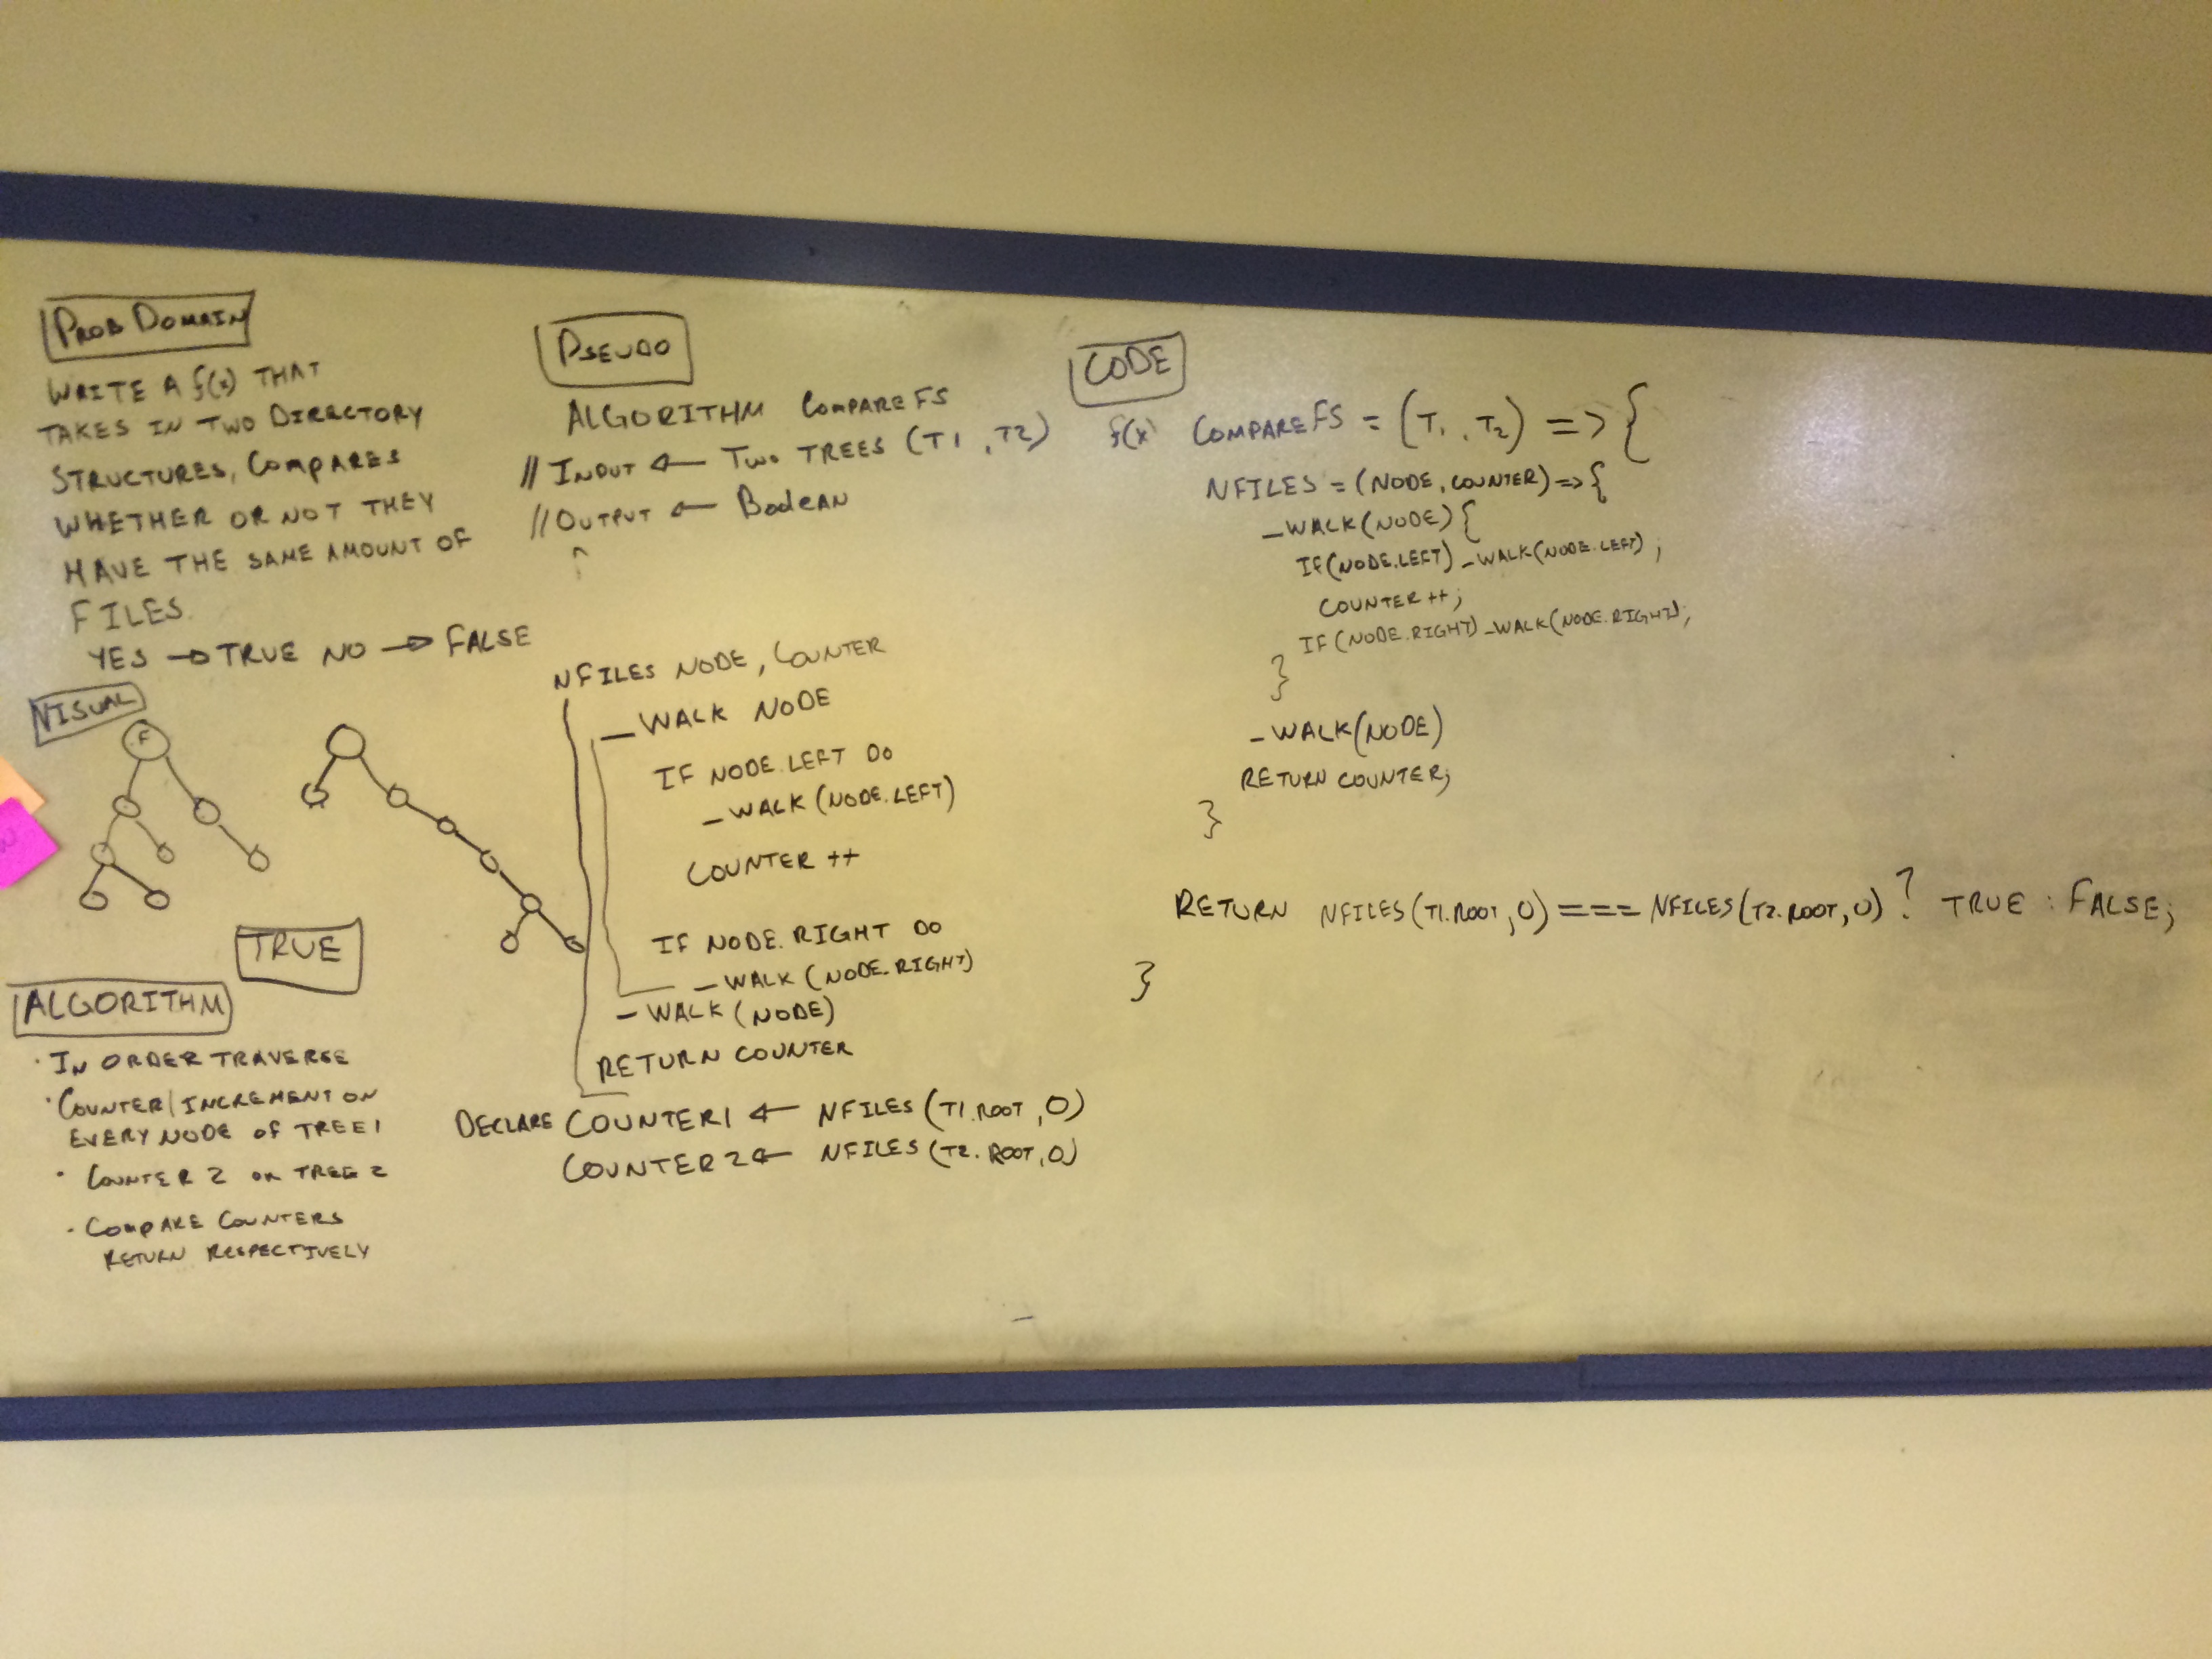 PROB DOMAIN
WRITE A f(x) THAT
TAKES IN TWO DIRECTORY
STRUCTURES, COMPARES
WHETHER OR NOT THEY
HAVE THE SAME AMOUNT OF
FILES.
YES → TRUE NO → FALSE
VISUAL
F
TRUE
ALGORITHM
· IN ORDER TRAVERSE
· COUNTER/INCREMENT ON
EVERY NODE OF TREE 1
· COUNTER 2 ON TREE 2
· COMPARE COUNTERS
RETURN RESPECTIVELY
PSEUDO
ALGORITHM COMPARE FS
// INPUT ← TWO TREES (T1, T2)
// OUTPUT ← BOOLEAN
NFILES NODE, COUNTER
_WALK NODE
IF NODE.LEFT DO
_WALK (NODE.LEFT)
COUNTER ++
IF NODE.RIGHT DO
_WALK (NODE.RIGHT)
_WALK (NODE)
RETURN COUNTER
DECLARE COUNTER1 ← NFILES (T1.ROOT, 0)
COUNTER 2 ← NFILES (T2.ROOT, 0)
CODE
f(x) COMPAREFS = (T1, T2) => {
NFILES = (NODE, COUNTER) => {
_WALK(NODE) {
IF(NODE.LEFT) _WALK(NODE.LEFT);
COUNTER ++;
IF(NODE.RIGHT) _WALK(NODE.RIGHT);
}
_WALK(NODE)
RETURN COUNTER;
}
RETURN NFILES(T1.ROOT, 0) === NFILES(T2.ROOT, 0) ? TRUE : FALSE;
}